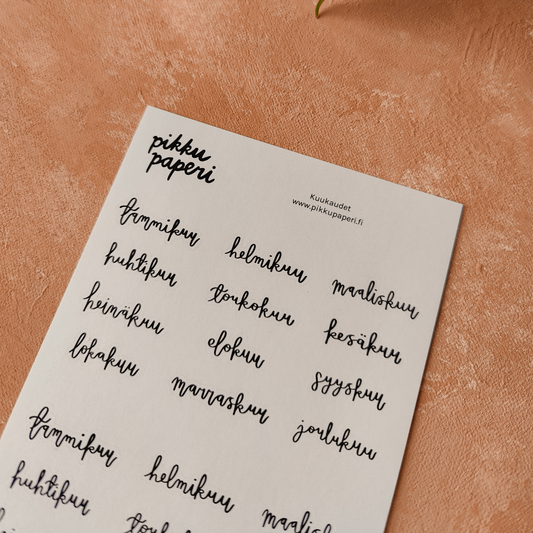 pikku
paperi
Kuukaudet
www.pikkupaperi.fi
tammikuu helmikuu maaliskuu
huhtikuu toukokuu kesäkuu
heinäkuu elokuu syyskuu
lokakuu marraskuu joulukuu
tammikuu helmikuu
huhtikuu